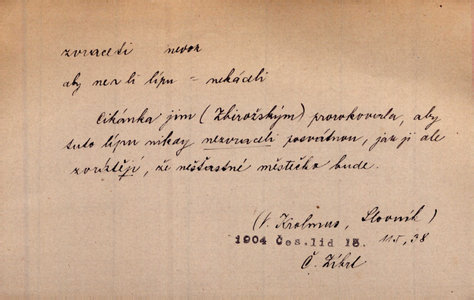 zvraceti nevor
aby nezvli lípu = nekáceli
Cikánka jim (Zbirožským) prorokovala, aby
tuto lípu nikdy nezvraceli posvátnou, jak ji ale
zvrátějí, že nešťastné městečko bude.
(V. Krolmus, Slovník)
1904 Čes. lid 13. 115, 38
Č. Zíbrt